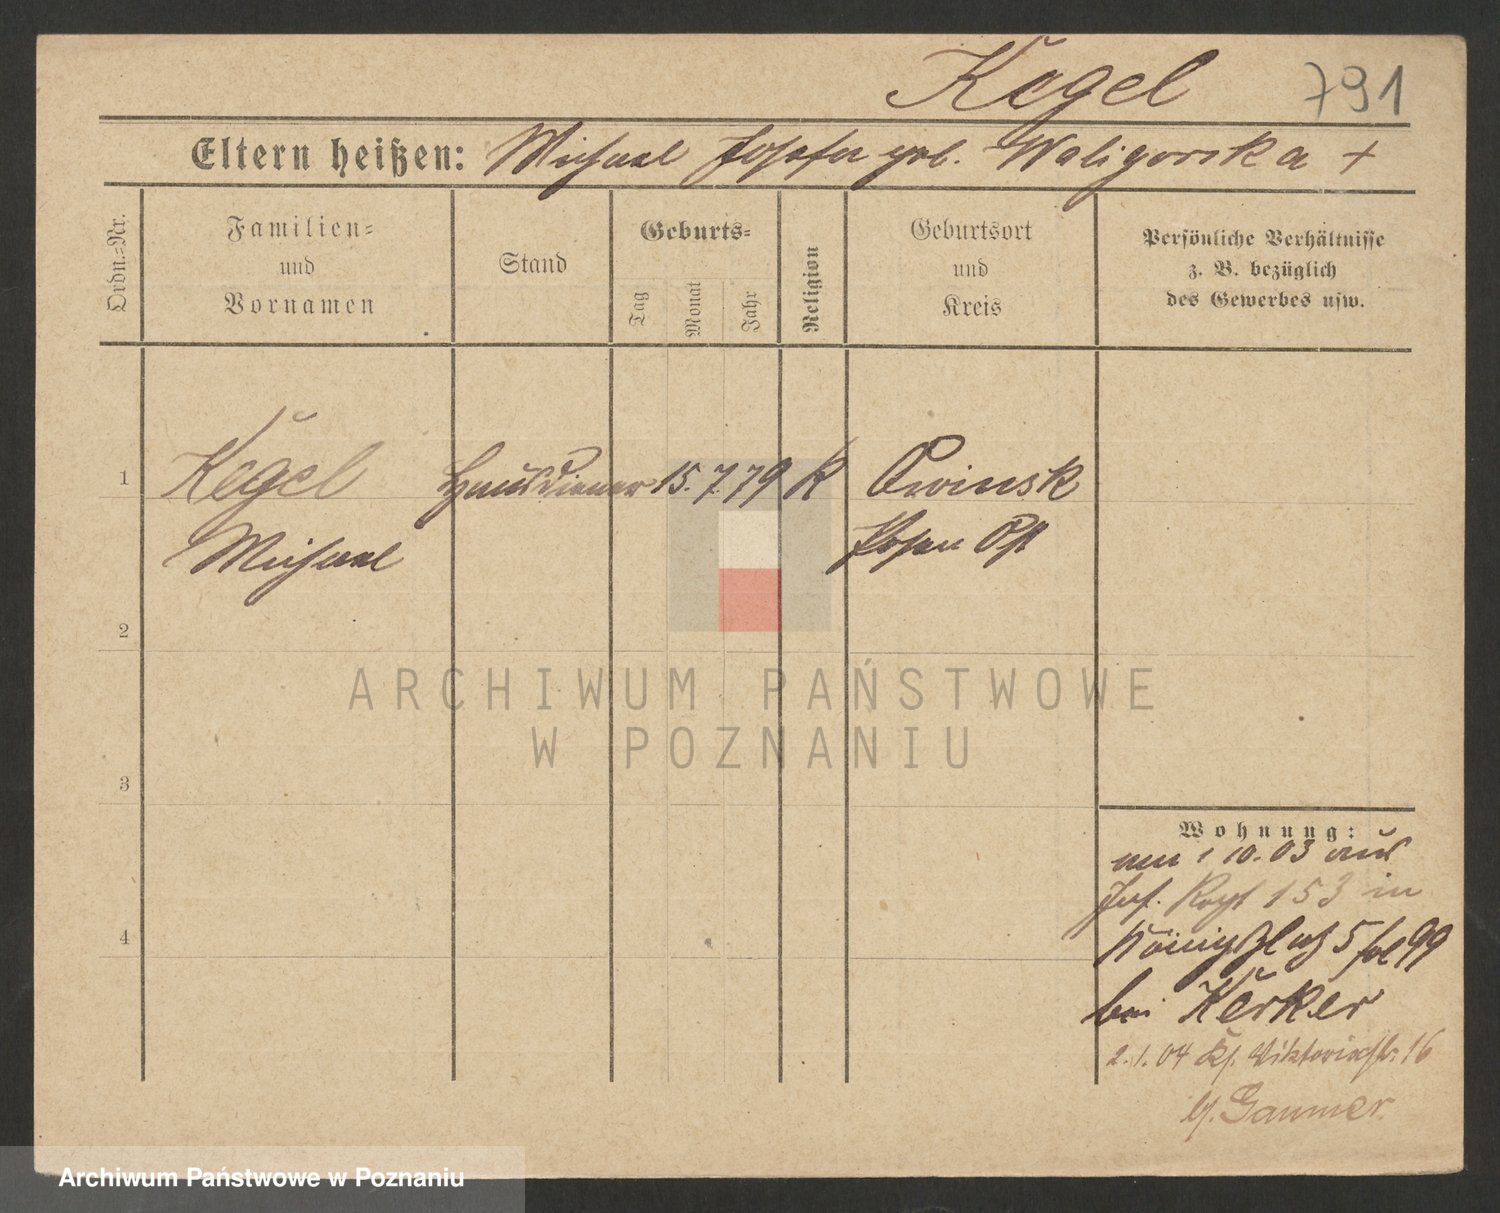 Kegel 791
Eltern heißen: Michael Josefa geb. Waligorska +
Ordn.=Nr.
Familien=
und
Vornamen
Stand
Geburts=
Tag
Monat
Jahr
Religion
Geburtsort
und
Kreis
Persönliche Verhältnisse
z. B. bezüglich
des Gewerbes usw.
1 Kegel Hausdiener 15. 7. 79 K Owinsk
Michael Posen Ost
2
3
4
ARCHIWUM PAŃSTWOWE
W POZNANIU
Wohnung:
am 1 10. 03 aus
Inf. Regt 153 in
Königsplatz 5 fol 99
bei Kerker
2. 1. 04 Viktoriastr. 16
b/. Gaumer.
Archiwum Państwowe w Poznaniu